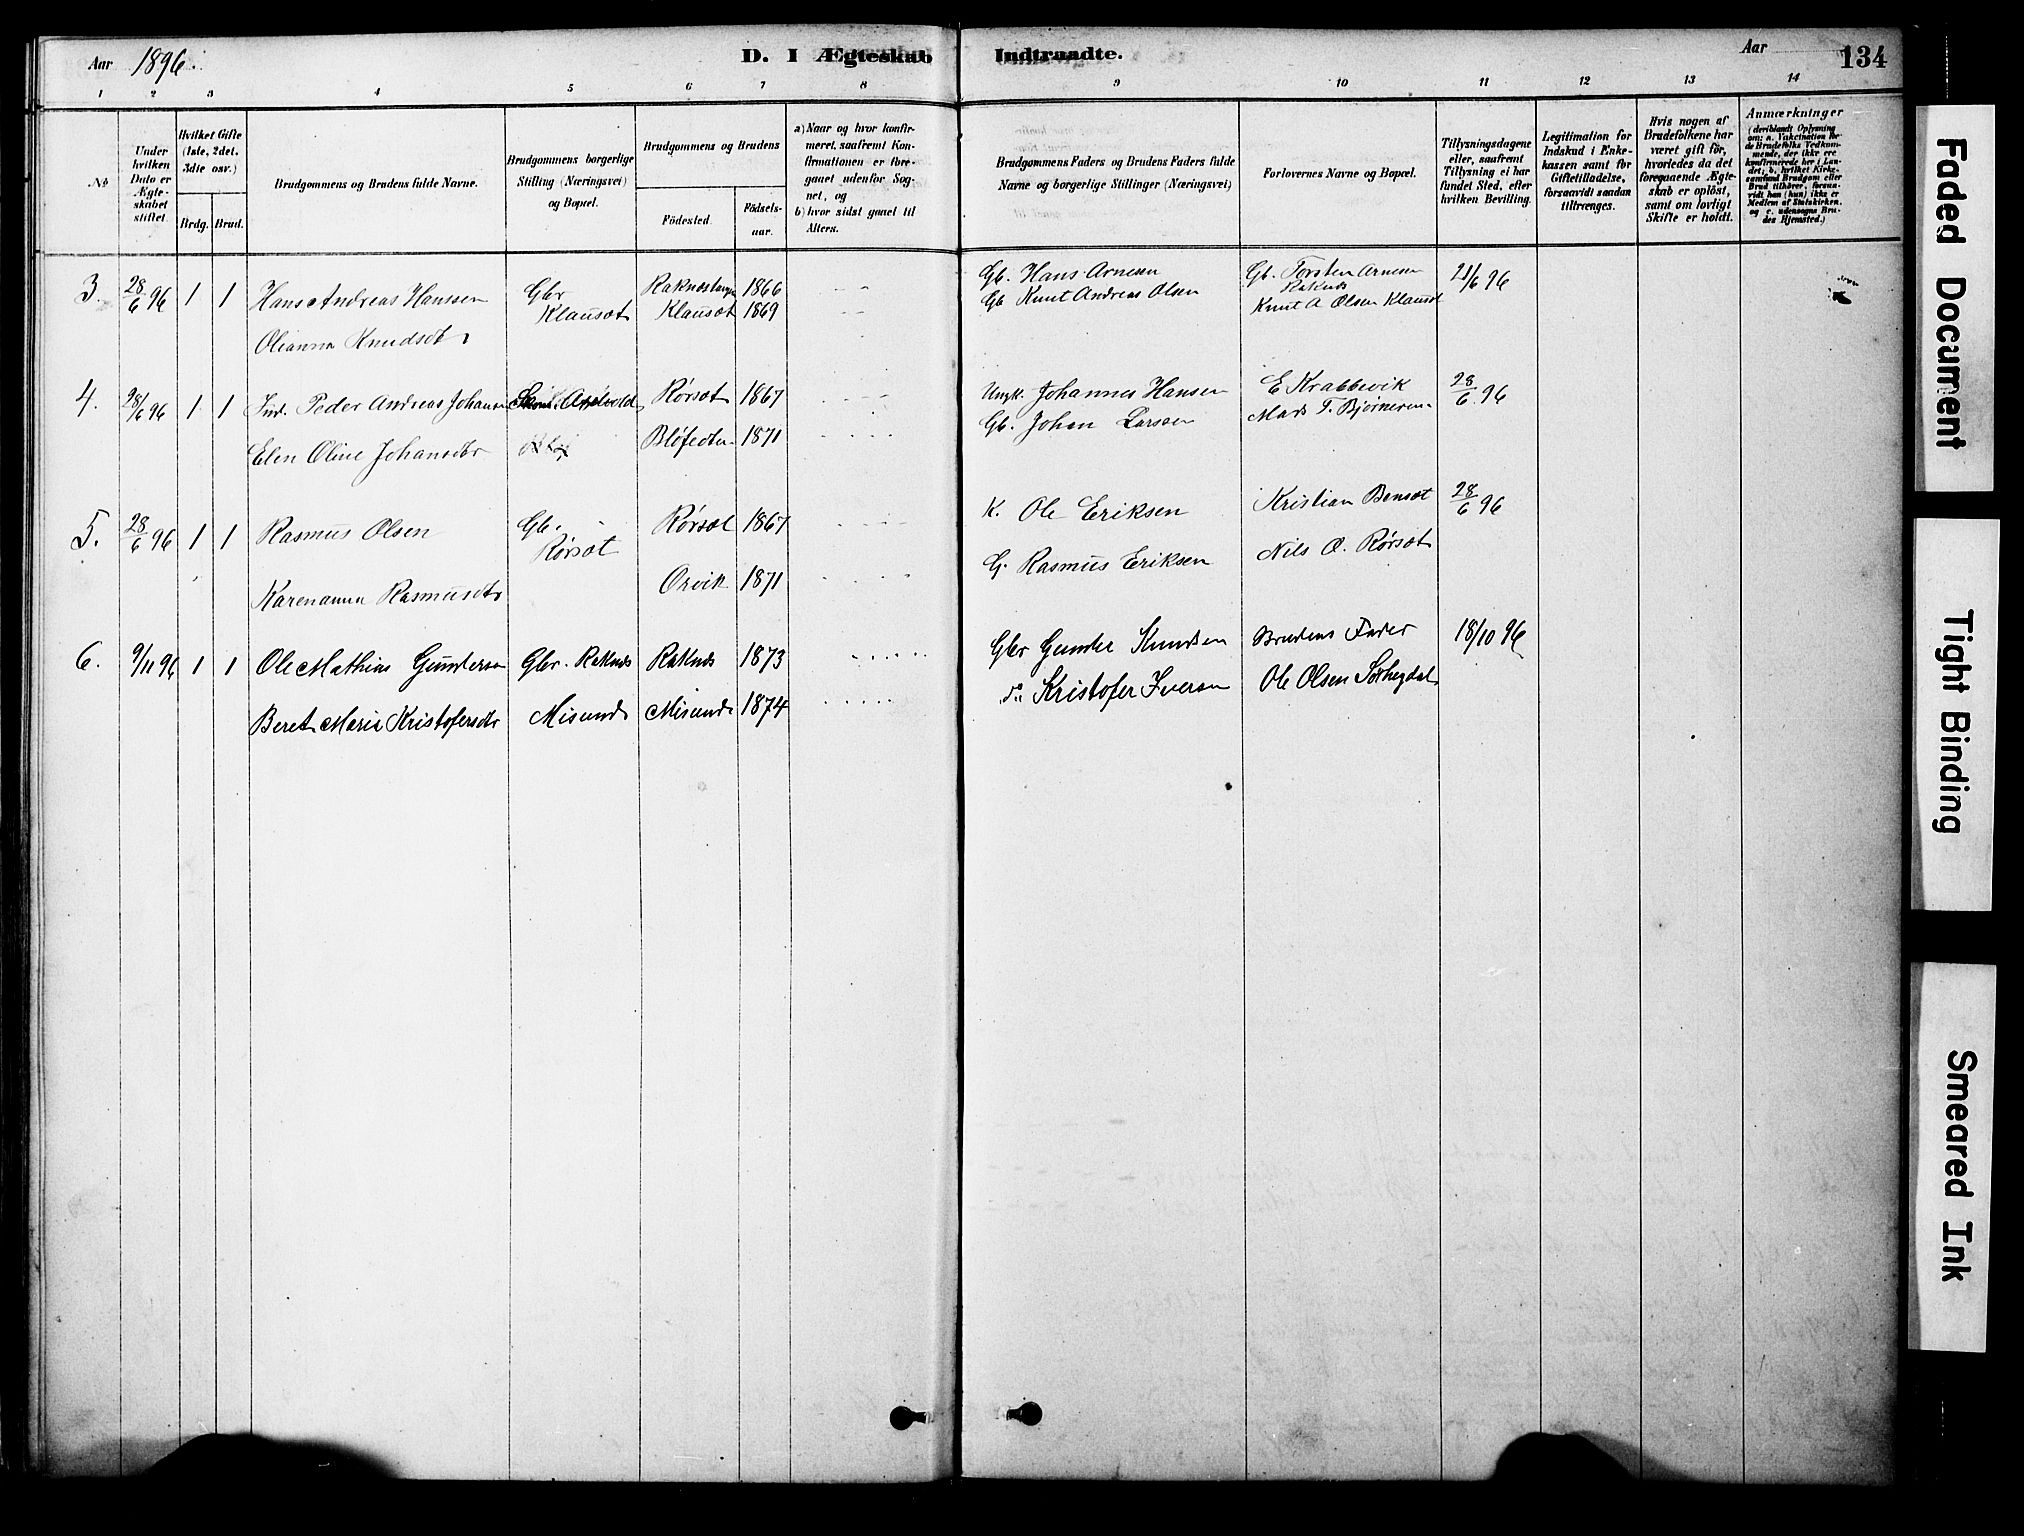 Aar 1896.
D. I Ægteskab Indtraadte.
Aar
134
1 2 3 4 5 6 7 8 9 10 11 12 13 14
No
Under hvilken Dato er Ægteskabet stiftet.
Hvilket Gifte (1ste, 2det, 3die osv.)
Brdg. Brud.
Brudgommens og Brudens fulde Navne.
Brudgommens borgerlige Stilling (Næringsvei) og Bopæl.
Brudgommens og Brudens
Fødested. Fødselsaar.
a) Naar og hvor konfirmeret, saafremt Konfirmationen er foregaaet udenfor Sognet, og
b) hvor sidst gaaet til Alters.
Brudgommens Faders og Brudens Faders fulde Navne og borgerlige Stillinger (Næringsvei)
Forlovernes Navne og Bopæl.
Tillysningsdagene eller, saafremt Tillysning ei har fundet Sted, efter hvilken Bevilling.
Legitimation for Indskud i Enkekassen samt for Giftetilladelse, forsaavidt saadan tiltrænges.
Hvis nogen af Brudefolkene har været gift før, hvorledes da det foregaaende Ægteskab er opløst, samt om lovligt Skifte er holdt.
Anmærkninger (deriblandt Oplysning om: a. Vakcination for de Brudefolks Vedkommende, der ikke ere konfirmerede her i Landet; b. hvilket Kirkesamfund Brudgom eller Brud tilhører, forsaavidt han (hun) ikke er Medlem af Statskirken, og c. udensogns Brudes Hjemsted.)
3. 28/6 96 1 1 Hans Andreas Hanssen Gbr Raknestangen 1866 Gb. Hans Arnesen Gb. Torsten Arnesen Raknes 21/6 96
Olianna Knudsdt Klauset Klauset 1869 Gb Knut Andreas Olsen Knut A Olsen Klauset
4. 28/6 96 1 1 Ind. Peder Andreas Johansen Rørset 1867 Ungk. Johannes Hansen E Krabbevik 28/6 96
Elen Oline Johansdtr 1871 Gb. Johan Larssen Mads T. Bjørnerem
5. 28/6 96 1 1 Rasmus Olsen Gb. Rørset Rørset 1867 K. Ole Eriksen Kristian Benset 28/6 96
Karenanna Rasmusdtr Orvik 1871 G. Rasmus Eriksen Nils O. Rørset
6. 9/11 96 1 1 Ole Mathias Gundersen Gbr. Raknes Raknes 1873 Gbr Gunder Knudsen Brudens Fader 18/10 96
Beret Marie Kristofersdtr Misund Misund 1874 Do Kristofer Iversen Ole Olsen Solhegdal
Faded Document
Tight Binding
Smeared Ink